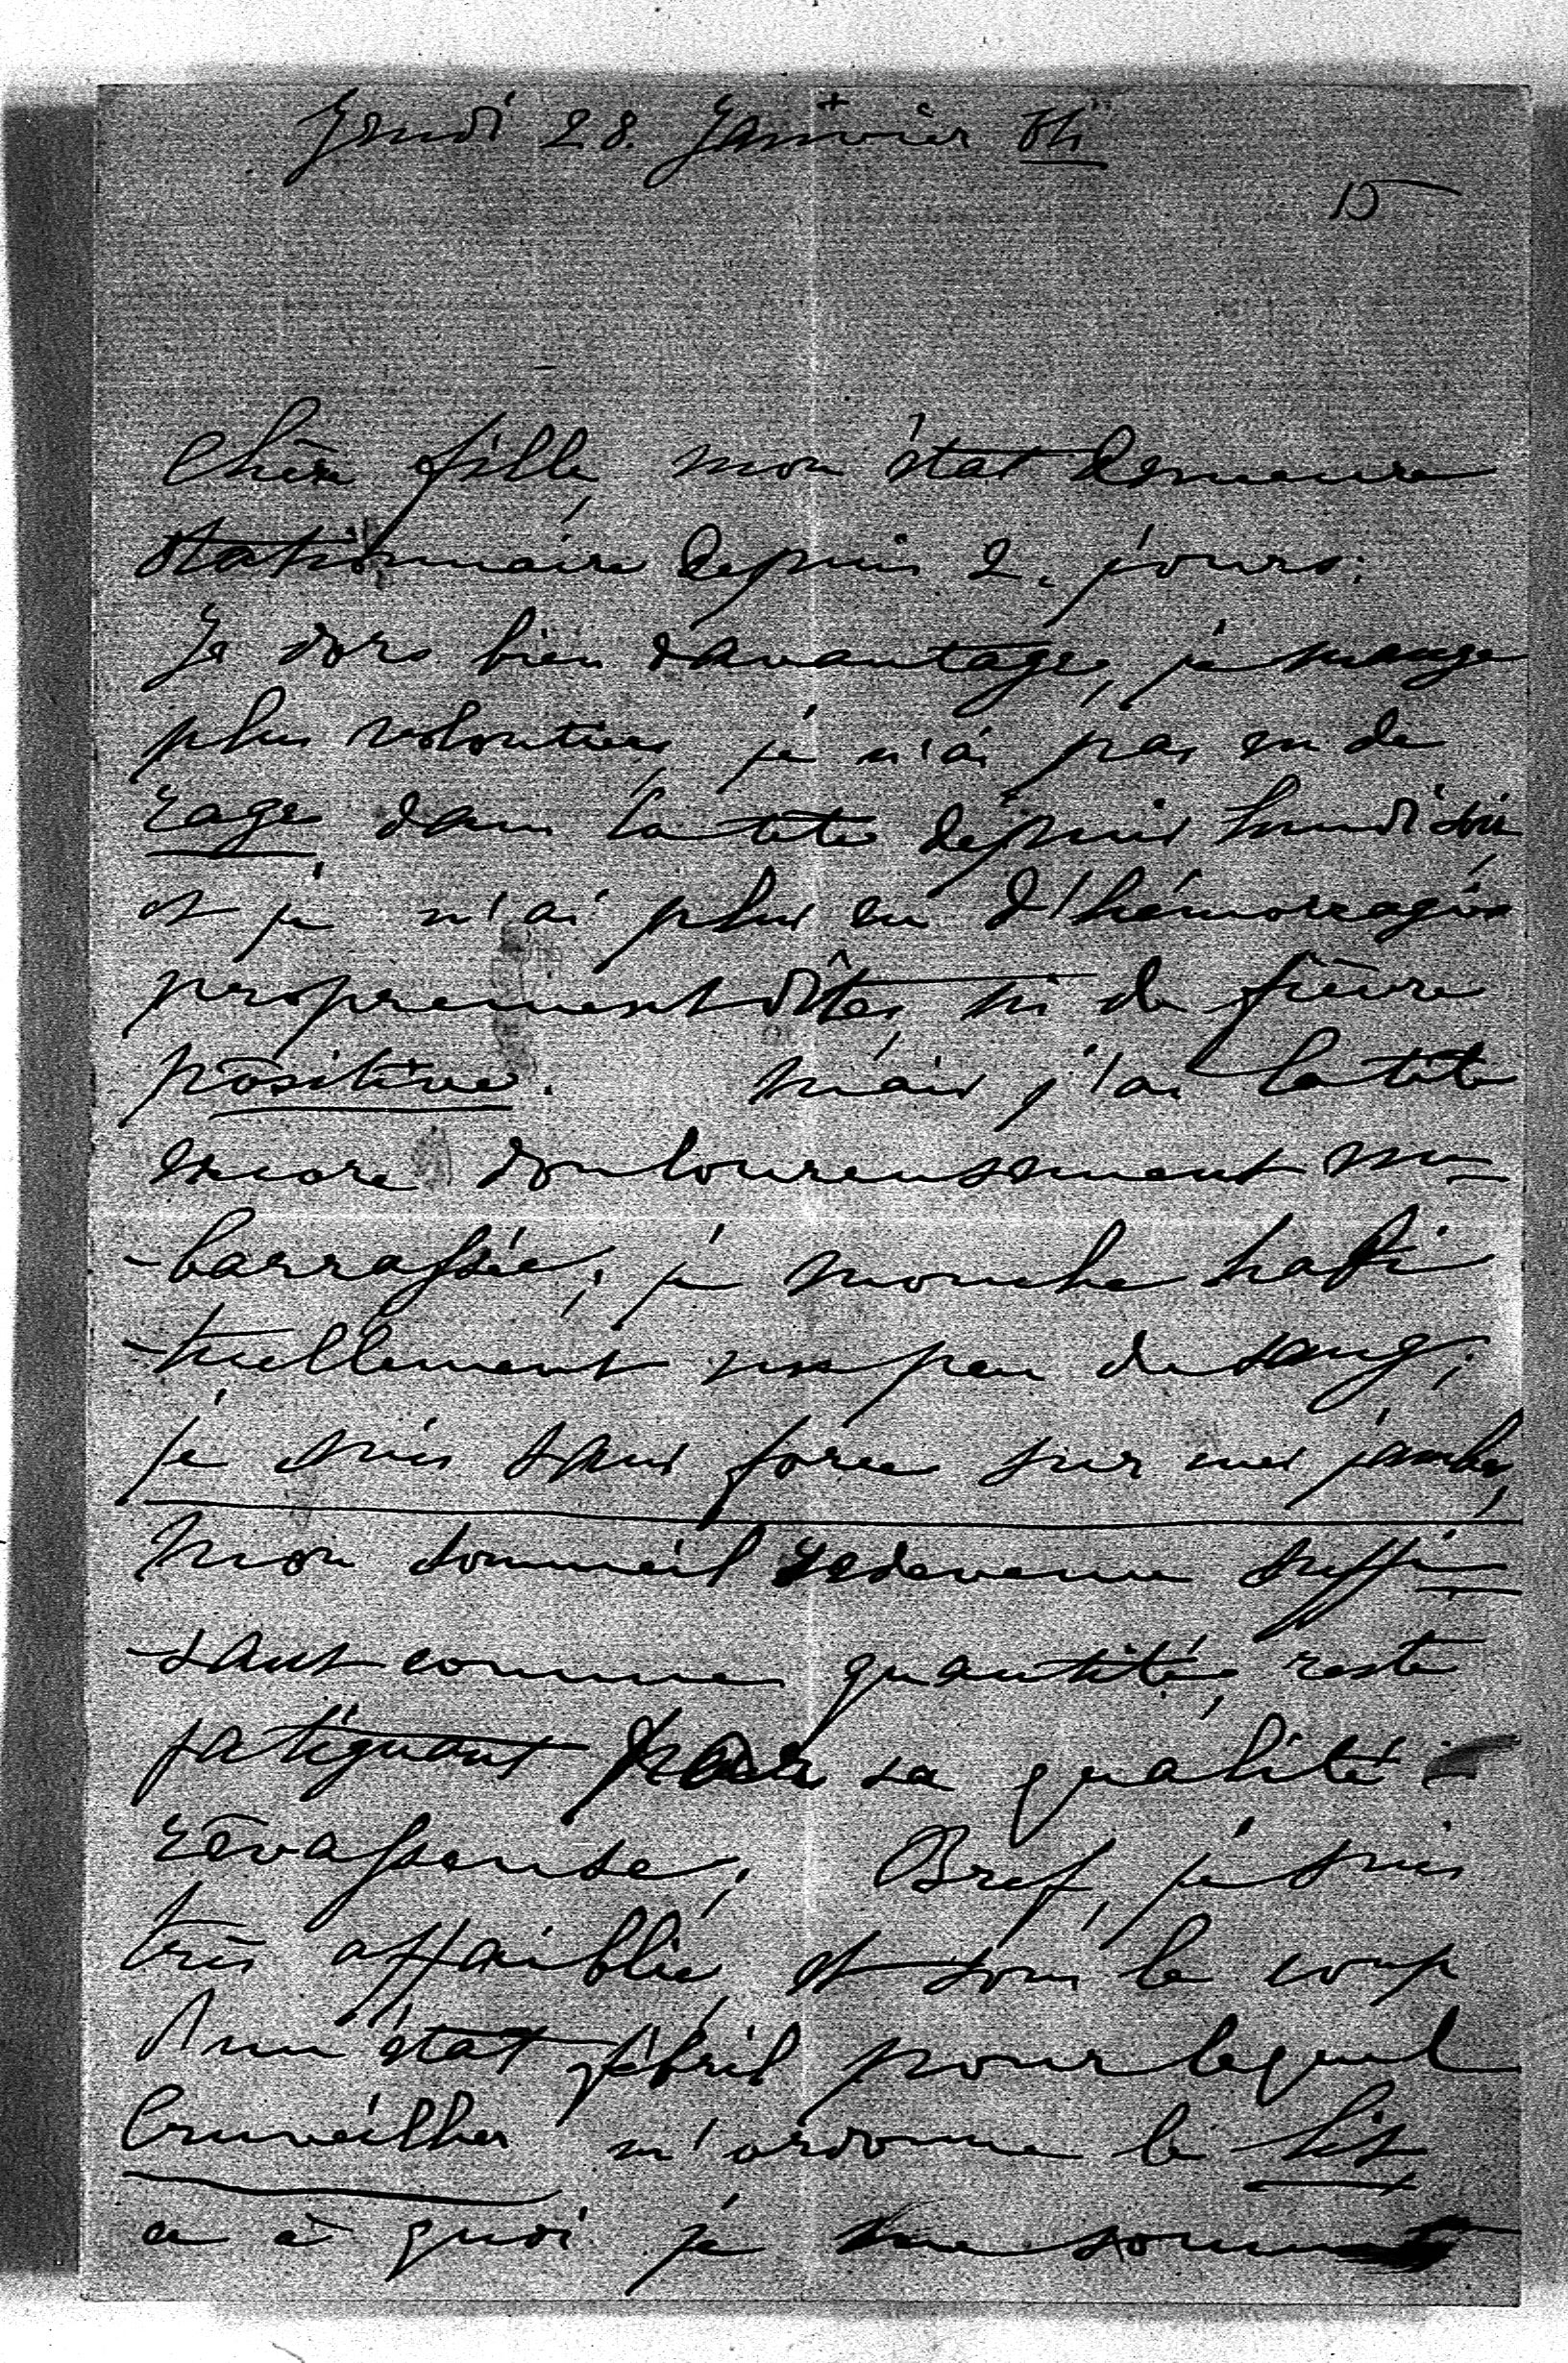 Jeudi 28. Janvier
15
Chère fille, mon état demeure
stationnaire depuis 2. jours:
Je dors bien davantage, je mange
plus volontiers, je n'ai pas eu de
rage, dans la tête depuis lundi soir,
et je n'ai plus eu d'hémorragies
proprement dîtes, ni de fièvre
positive. Mais j'ai la tête
encore douloureusement em-
-barrassée; je mouche habi
-tuellement un peu de sang;
je suis sans force sur mes jambes,
Mon sommeil redevenu suffi-
-sant comme quantité, reste
fatiguant par sa qualité
rêvasseuse; Bref, je suis
très affaiblie, et sous le coup
d'un état fébril pour lequel
Cruveilher m'ordonne le lit
ce à quoi je me soumets